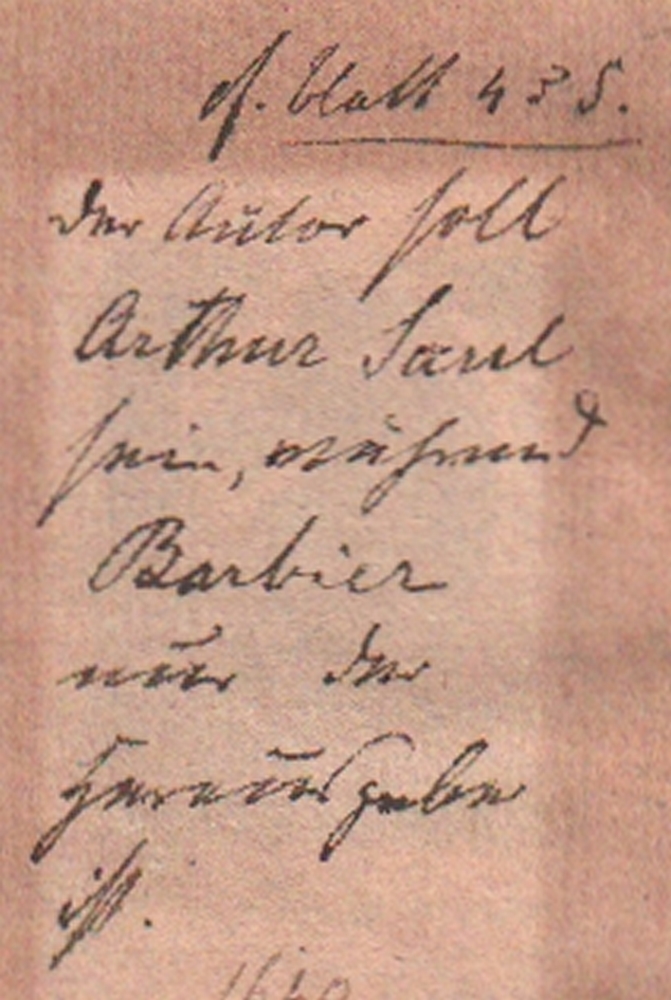 cf. Blatt 435.
Der Autor soll
Arthur Saul
sein, während
Barbier
nur der
Herausgeber
ist.
1640